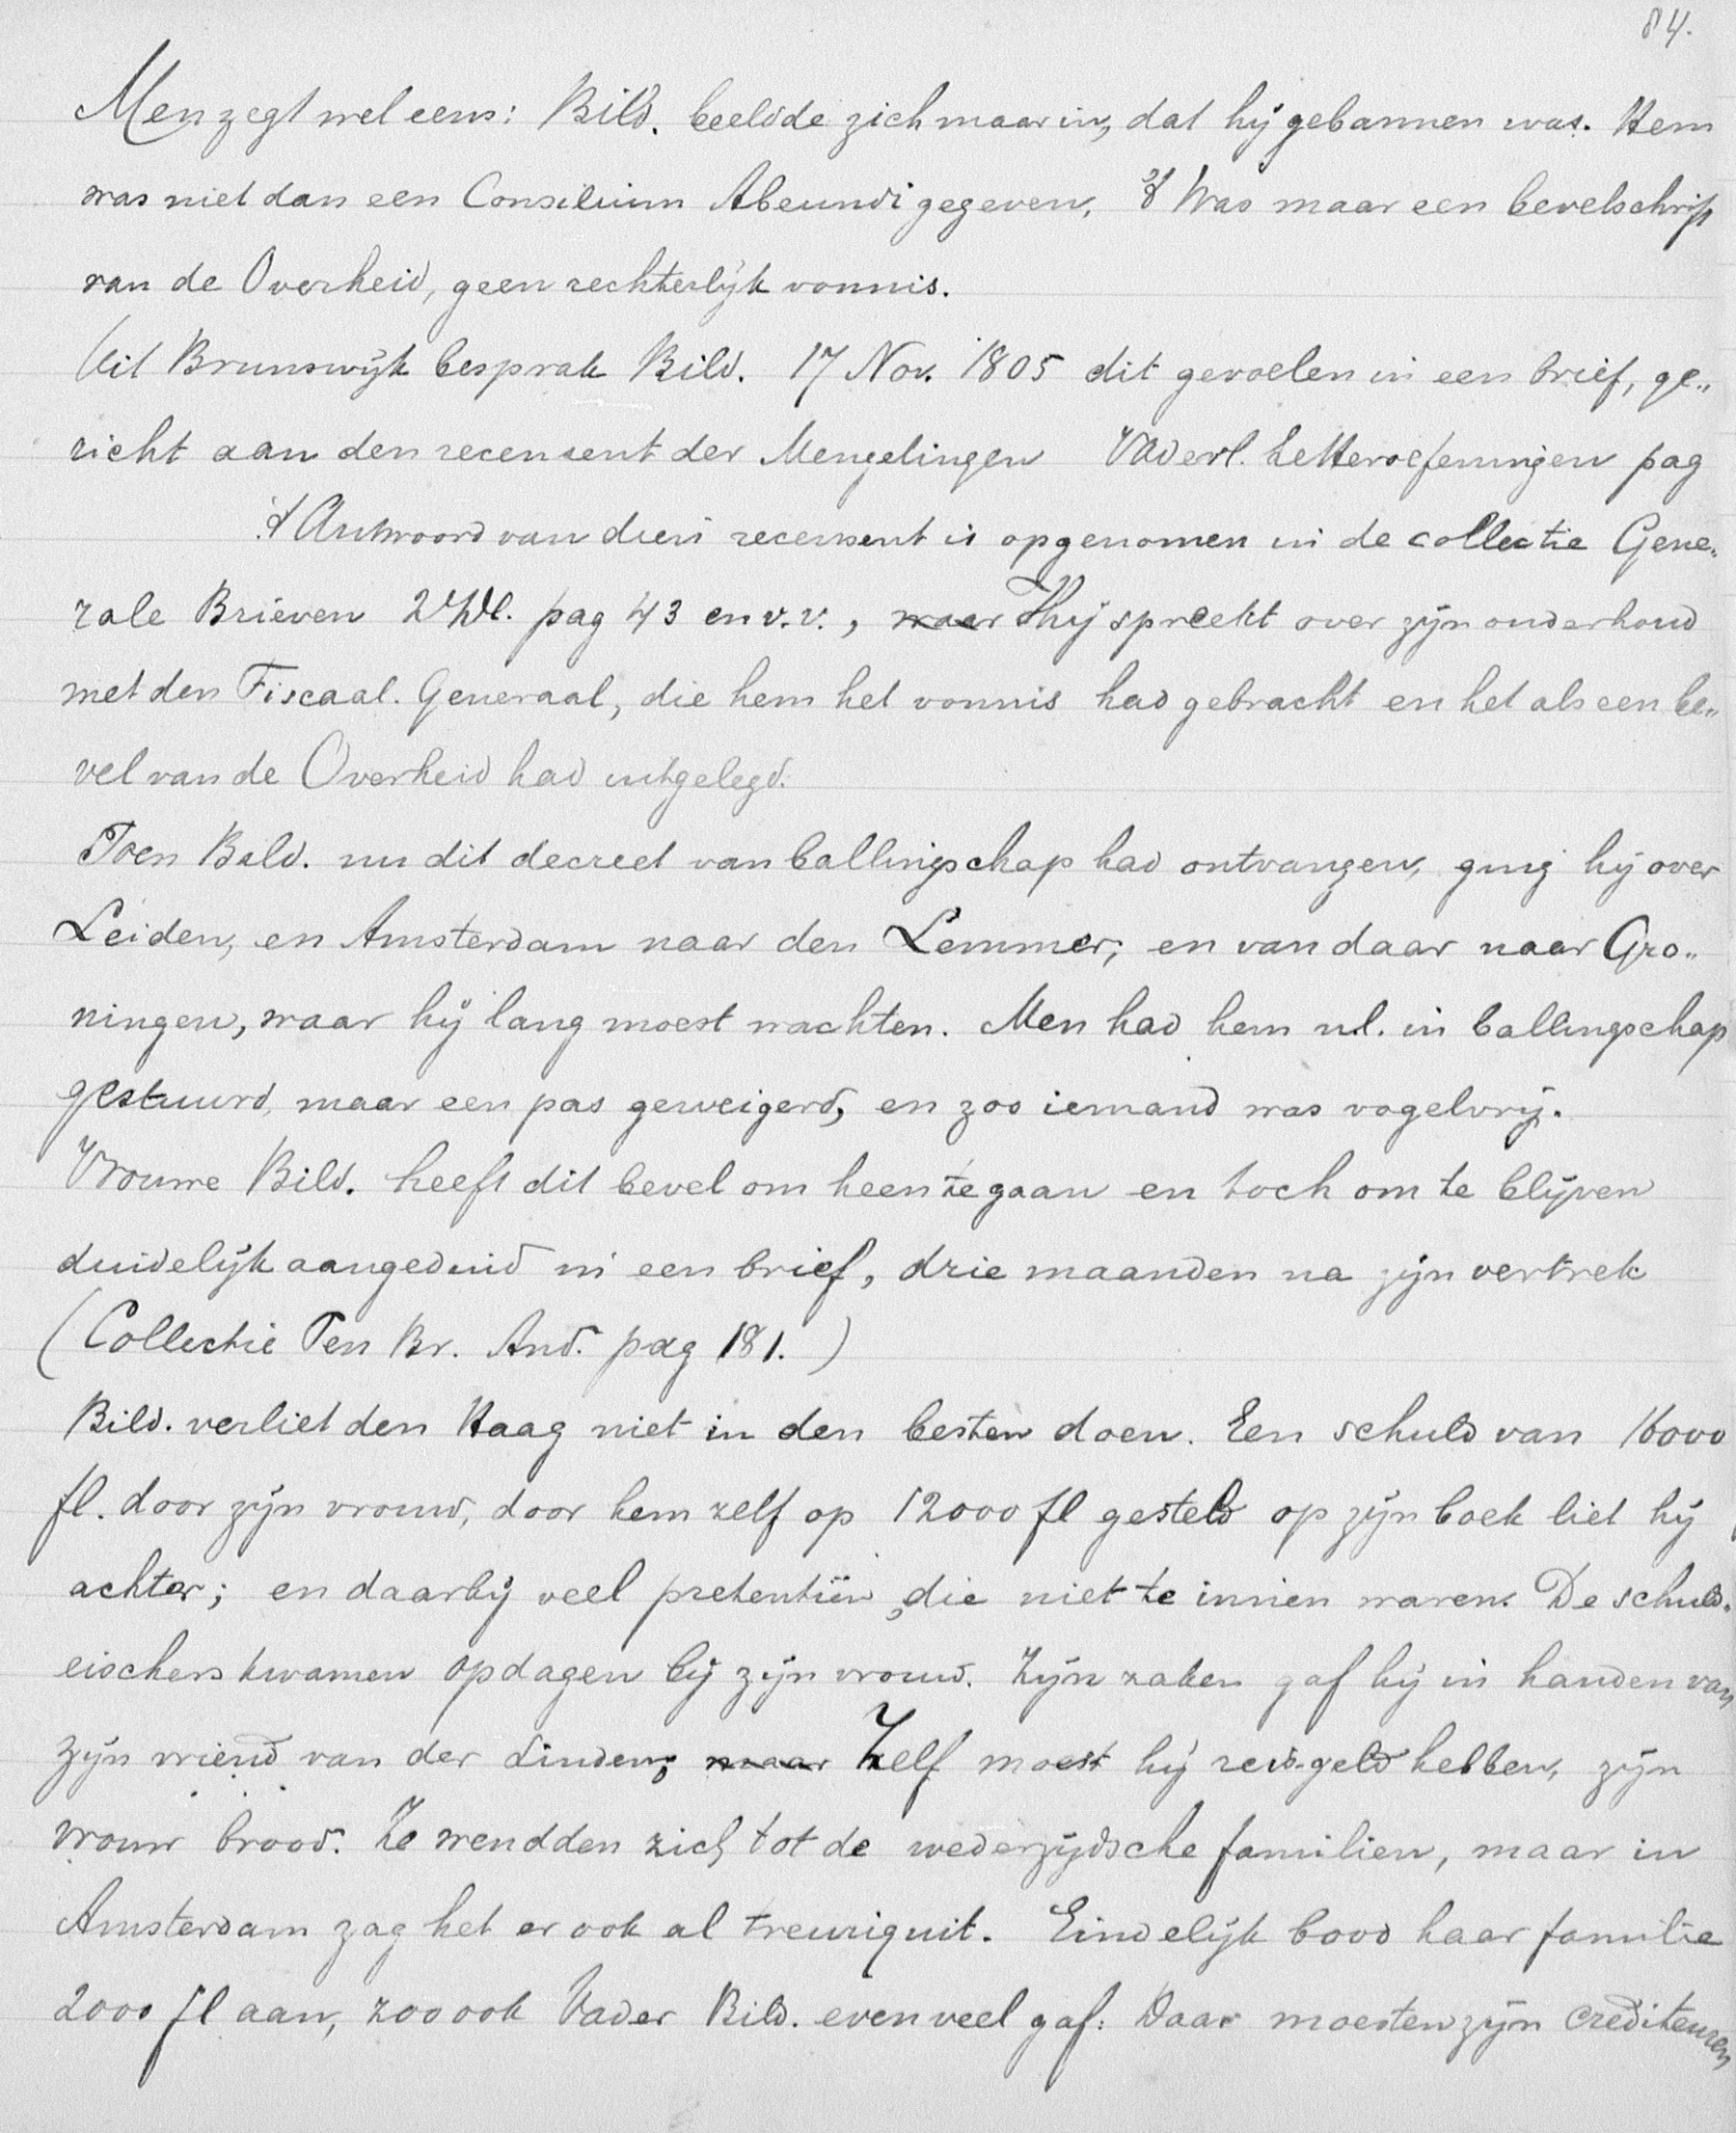 84.
Men zegt wel eens: Bild. beeldde zich maar in, dat hij gebannen was. Hem
was niet dan een Consilium Abeundi gegeven, 't Was maar een bevelschrift
van de Overheid, geen rechterlijk vonnis.
Uit Brunswijk besprak Bild. 17 Nov. 1805 dit gevoelen in een brief, ge„
richt aan den recensent der Mengelingen Vaderl. Letteroefeningen pag
't Antwoord van dien recensent is opgenomen in de collectie Gene„
rale Brieven 2de Dl. pag 43 en v.v., waar hij spreekt over zijn onderhoud
met den Fiscaal. Generaal, die hem het vonnis had gebracht en het als een be„
vel van de Overheid had uitgelegd.
Toen Bild. nu dit decreet van ballingschap had ontvangen, ging hij over
Leiden, en Amsterdam naar den Lemmer, en van daar naar Gro„
ningen, waar hij lang moest wachten. Men had hem nl. in ballingschap
gestuurd, maar een pas geweigerd, en zoo iemand was vogelvrij.
Vrouwe Bild. heeft dit bevel om heen te gaan en toch om te blijven
duidelijk aangeduid in een brief, drie maanden na zijn vertrek
(Collectie Ten Br. And. pag 181.)
Bild. verliet den Haag niet in den besten doen. Een schuld van 16000
fl. door zijn vrouw, door hem zelf op 12000 fl gesteld op zijn boek liet hij
achter; en daarbij veel pretentiën, die niet te innen waren. De schuld„
eischers kwamen opdagen bij zijn vrouw. Zijn zaken gaf hij in handen van
zijn vriend van der Linden, maar Zelf moest hij reis-geld hebben, zijn
vrouw brood. Ze wendden zich tot de wederzijdsche familien, maar in
Amsterdam zag het er ook al treurig uit. Eindelijk bood haar familie
2000 fl aan, zoo ook Vader Bild. evenveel gaf. Daar moesten zijn crediteuren